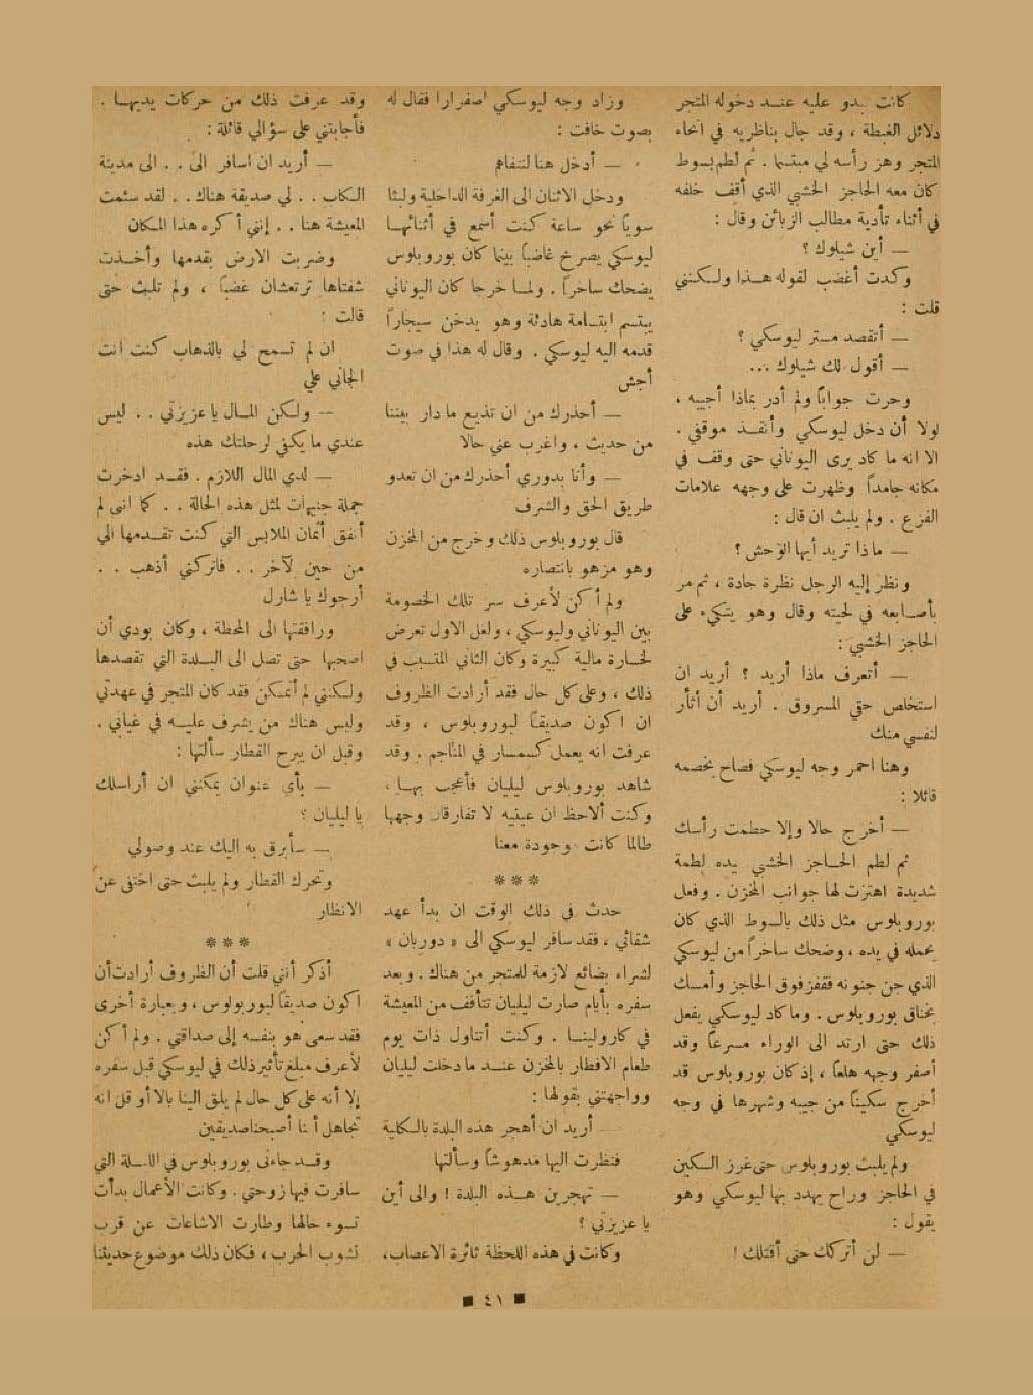 كانت يبدو عليه عنـد دخوله المتجر
دلائل الغبطة ، وقد جال بناظريه في انحاء
المتجر وهز رأسه لي مبتسما . ثم لطم بسوط
كان معه الحاجز الخشبي الذي أقف خلفه
في أثناء تأدية مطالب الزبائن وقال :
— أين شيلوك ؟
وكدت أغضب لقوله هـذا ولـكنني
قلت :
— أتقصد مستر ليوسكي ؟
— أقول لك شيلوك ...
وحرت جواباً ولم أدر بماذا أجيبه ،
لولا أن دخل ليوسكي وأنقـذ موقفي .
الا انه ما كاد يرى اليوناني حتى وقف في
مكانه جامداً وظهرت على وجهه علامات
الفزع . ولم يلبث ان قال :
— ماذا تريد أيها الوحش ؟
ونظر إليه الرجل نظرة جادة ، ثم مر
بأصـابعه في لحيته وقال وهو يتكيء على
الحاجز الخشبي :
— أتعرف ماذا أريد ؟ أريد ان
استخلص حقي المسروق . أريد أن أثأر
لنفسي منك
وهنا احمر وجه ليوسكي فصاح بخصمه
قائلا :
— أخرج حالا وإلا حطمت رأسك
ثم لطم الحـاجز الخشبي بيده لطمة
شديدة اهتزت لها جوانب المخزن . وفعل
بوروبلوس مثل ذلك بالسوط الذي كان
يحمله في يده ، وضحك ساخراً من ليوسكي
الذي جن جنونه فقفز فوق الحاجز وأمسك
بخناق بوروبلوس . وما كاد ليوسكي يفعل
ذلك حتى ارتد الى الوراء مسرعاً وقد
أصفر وجهه هلعاً ، إذ كان بوروبلوس قد
أخرج سكيناً من جيبه وشهرها في وجه
ليوسكي
ولم يلبث بوروبلوس حتى غرز السكين
في الحاجز وراح يهدد بها ليوسكي وهو
يقول :
— لن أتركك حتى أقتلك !
وزاد وجه ليوسكي اصفرارا فقال له
بصوت خافت :
— أدخل هنا لنتفاهم
ودخل الاثنان الى الغرفة الداخلية ولبثا
سوياً نحو ساعة كنت أسمع في أثنائهـا
ليوسكي يصرخ غاضباً بينما كان بوروبلوس
يضحك ساخراً . ولمـا خرجا كان اليوناني
يبتسم ابتسامة هادئة وهو يدخن سيجاراً
قدمه اليه ليوسكي . وقال له هذا في صوت
أجش
— أحذرك من ان تذيع ما دار بيننا
من حديث ، واغرب عني حالا
— وأنا بدوري أحذرك من ان تعدو
طريق الحق والشرف
قال بوروبلوس ذلك وخرج من المخزن
وهو مزهو بانتصاره
ولم أكن لأعرف سر تلك الخصومة
بين اليوناني وليوسكي ، ولعل الاول تعرض
لخسارة مالية كبيرة وكان الثاني المتسبب في
ذلك ، وعلى كل حال فقد أرادت الظروف
ان اكون صديقاً لبوروبلوس ، وقد
عرفت انه يعمل كسمسار في المناجم . وقد
شاهد بوروبلوس ليليان فأعجب بهـا ،
وكنت ألاحظ ان عينيه لا تفارقان وجهها
طالما كانت موجودة معنا
***
حدث في ذلك الوقت ان بدأ عهد
شقائي ، فقد سافر ليوسكي الى « دوربان »
لشراء بضائع لازمة للمتجر من هناك . وبعد
سفره بأيام صارت ليليان تتأفف من المعيشة
في كارولينـا . وكنت أتناول ذات يوم
طعام الافطار بالمخزن عنـد ما دخلت ليليان
وواجهتني بقولها :
— أريد ان أهجر هذه البلدة بالـكلية
فنظرت اليها مدهوشاً وسألتها
— تهجرين هـذه البلدة ! والى أين
يا عزيزتي ؟
وكانت في هذه اللحظة ثائرة الاعصاب ،
وقد عرفت ذلك من حركات يديهـا .
فأجابتني على سؤالي قائلة :
— أريد ان اسافر الى . . الى مدينة
الـكاب . . لي صديقة هناك . . لقد سئمت
المعيشة هنا . . إنني أكره هذا المـكان
وضربت الارض بقدمها وأخـذت
شفتاها ترتعشان غضباً ، ولم تلبث حتى
قالت :
ان لم تسمح لي بالذهاب كنت انت
الجاني علي
— ولـكن المـال يا عزيزتي . . ليس
عندي ما يكفي لرحلتك هذه
— لدي المال اللازم . فقـد ادخرت
جملة جنيهات لمثل هذه الحالة . . كما انني لم
أنفق أثمان الملابس التي كنت تقـدمها الي
من حين لآخر . . فاتركني أذهب . .
أرجوك يا شارل
ورافقتها الى المحطة ، وكان بودي أن
اصحبها حتى تصل الى البـلدة التي تقصدها
ولـكنني لم أتمـكن فقد كان المتجر في عهدتي
وليس هناك من يشرف عليـه في غيابي .
وقبل ان يبرح القطار سألتها :
— بأي عنوان يمكنني ان أراسلك
يا ليليان ؟
— سأبرق به اليك عند وصولي
وتحرك القطار ولم يلبث حتى اختفى عن
الانظار
***
أذكر أنني قلت أن الظروف أرادت أن
اكون صديقاً لبوربولوس ، وبعبارة أخرى
فقد سعى هو بنفسه إلى صداقتي . ولم أكن
لأعرف مبلغ تأثير ذلك في ليوسكي قبل سفره
إلا أنه على كل حال لم يلق الينا بالا أو قل انه
تجاهل أننا أصبحنا صديقين
وقـد جاءني بوروبلوس في الليـلة التي
سافرت فيها زوجتي . وكانت الأعمال بدأت
تسوء حالها وطارت الاشاعات عن قرب
نشوب الحرب ، فكان ذلك موضوع حديثنا
٤١